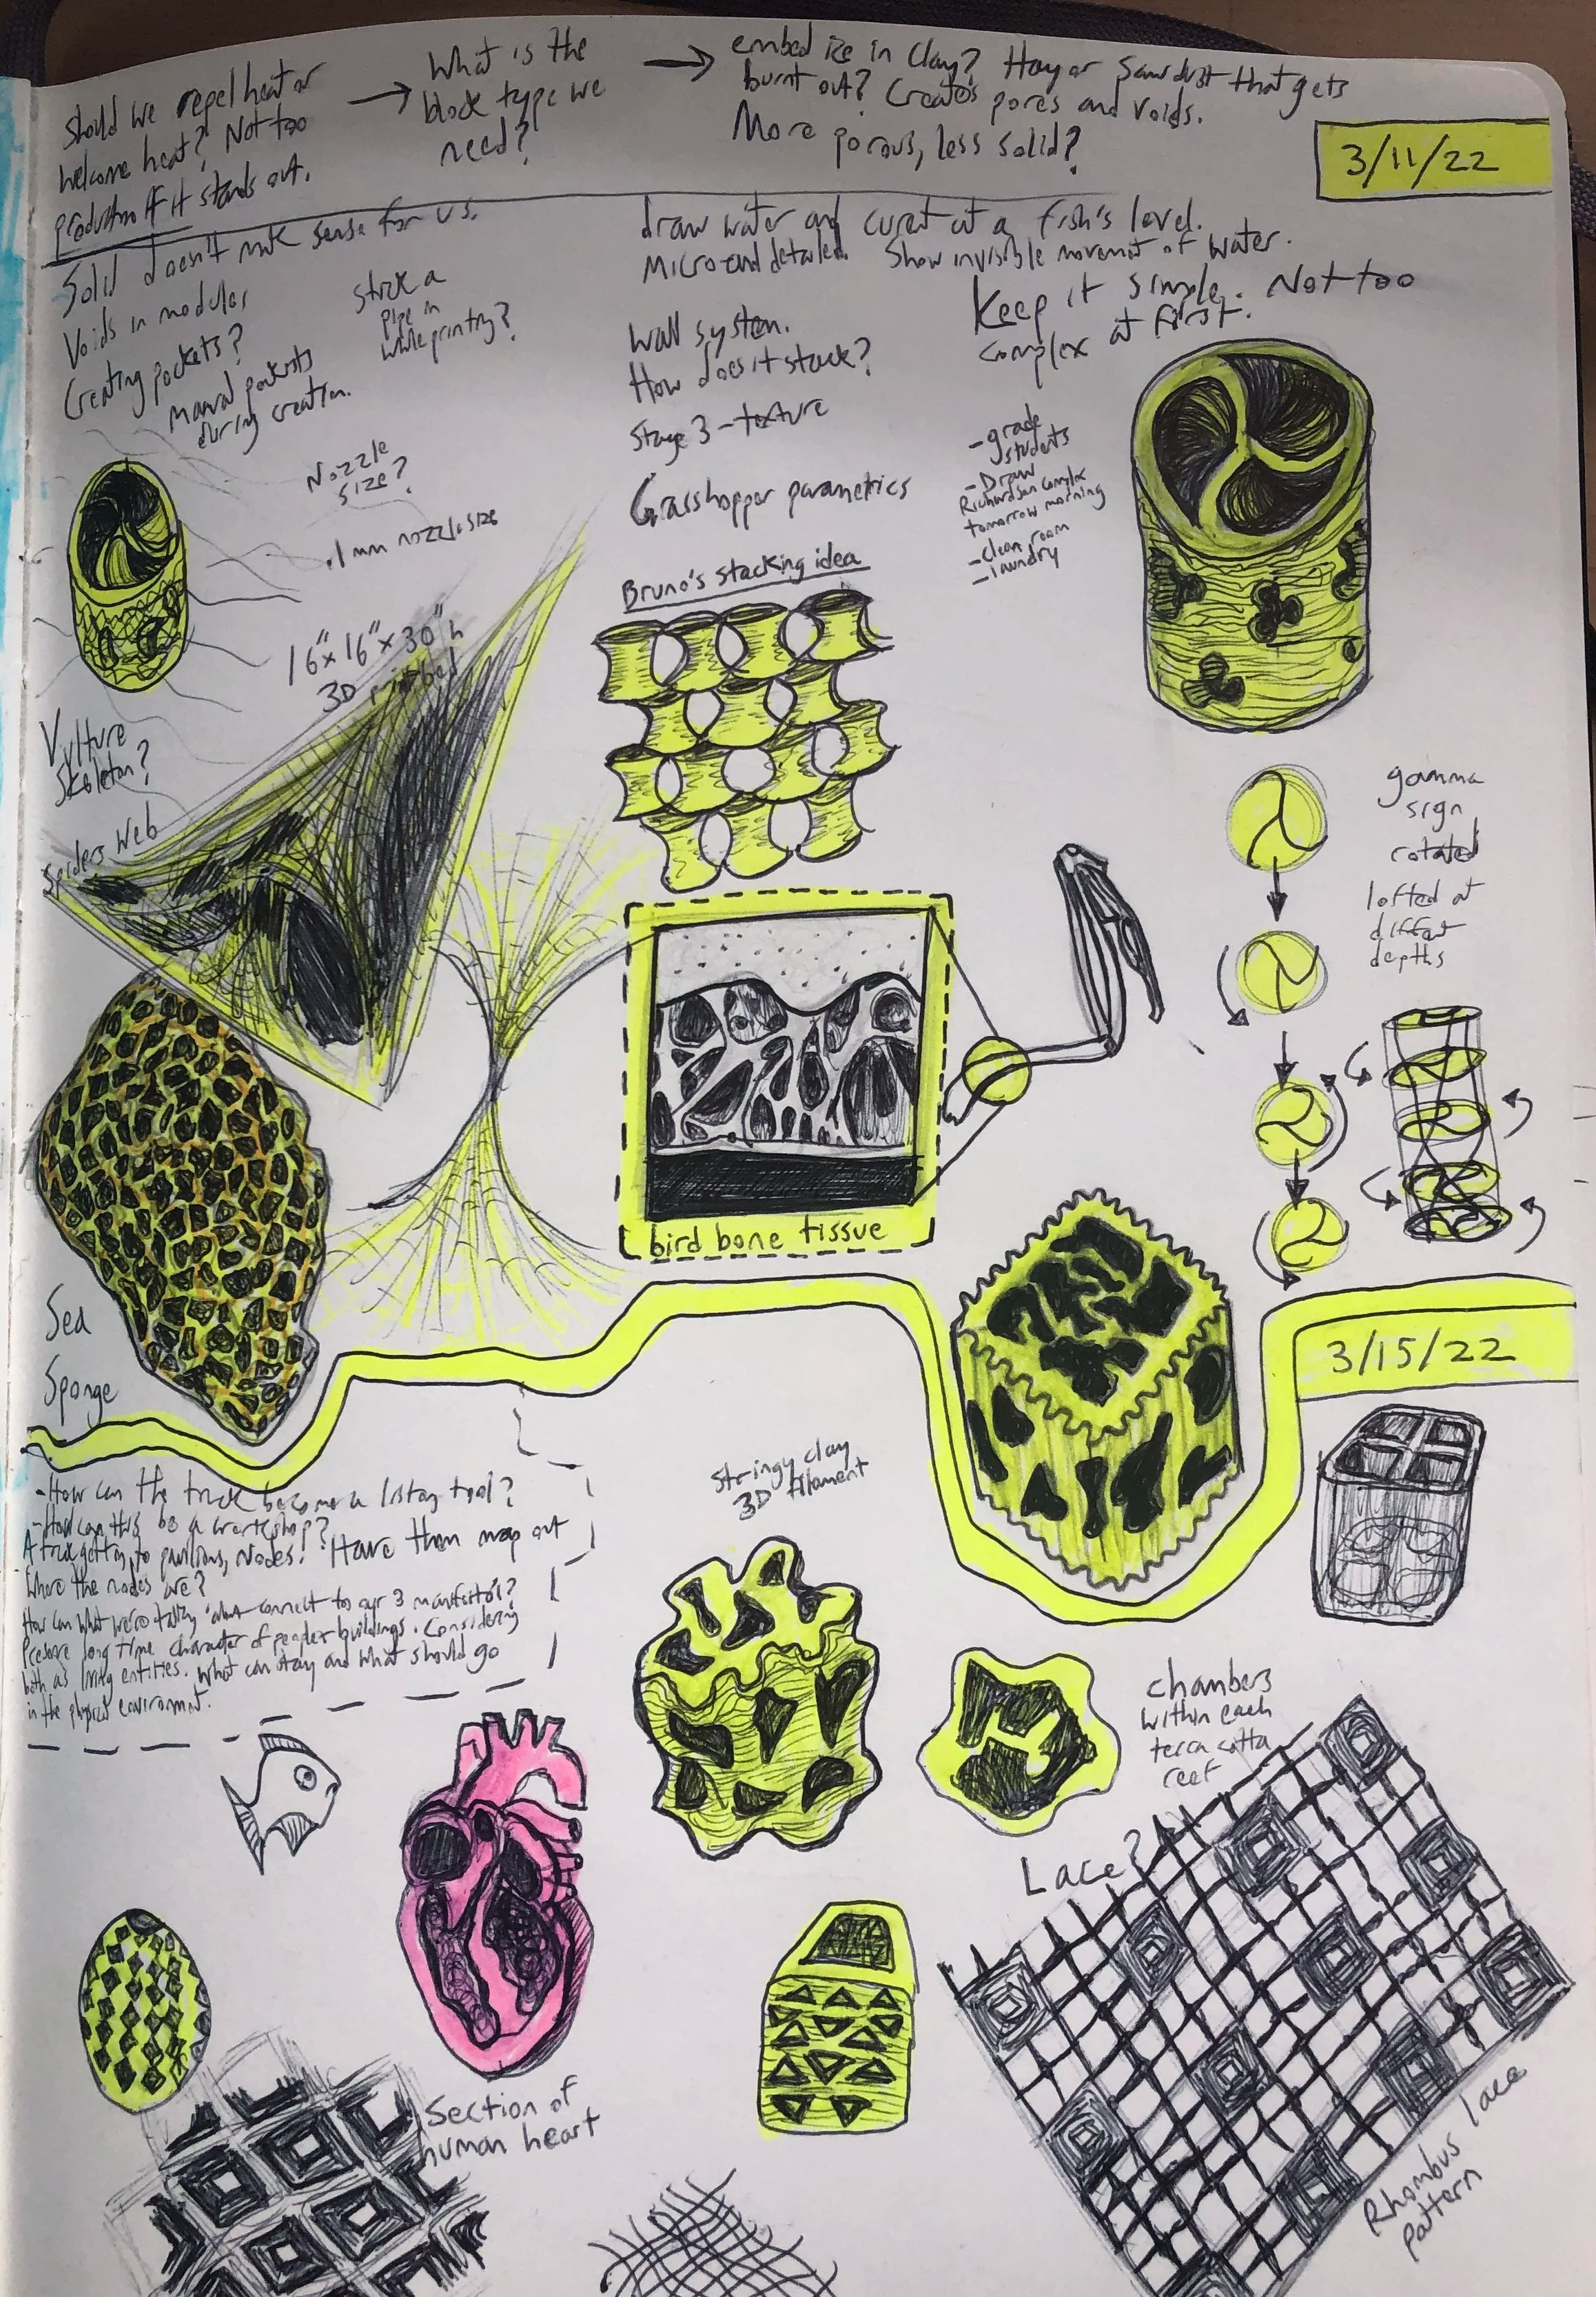 Should we repel heat or
welcome heat? Not too
production if it stands out.
What is the
block type we
need?
embed ice in clay? Hay or sawdust that gets
burnt out? Creates pores and voids.
More porous, less solid?
3/11/22
Solid doesn't make sense for us.
Voids in modular
Creating pockets?
manual pockets
during creation.
stick a
pipe in
while printing?
draw water and at a fish's level.
Micro and detailed. Show invisible movement of water.
Keep it simple. Not too
complex at first.
Wall system.
How does it stack?
Stage 3 - texture
Grasshopper parametrics
- grade
students
- Draw
Richardson Complex
tomorrow morning
- clean room
- laundry
Nozzle
size?
.1 mm nozzle size
16" x 16" x 30" h
3D print bed
Bruno's stacking idea
Vulture
Skeleton?
Spiders Web
gamma
sign
rotated
lofted at
different
depths
bird bone tissue
Sea
Sponge
3/15/22
- How can the truck become a tool?
- How can this be a workshop?
A truck to pavilions, nodes? Have them map out
Where the nodes are?
How can what we're talking about connect to our 3
Preserve long time character of people + buildings. Considering
both as living entities. What can stay and what should go
in the physical environment.
Stringy clay
3D filament
chambers
within each
terra cotta
reef
Lace?
Section of
human heart
Rhombus lace
pattern